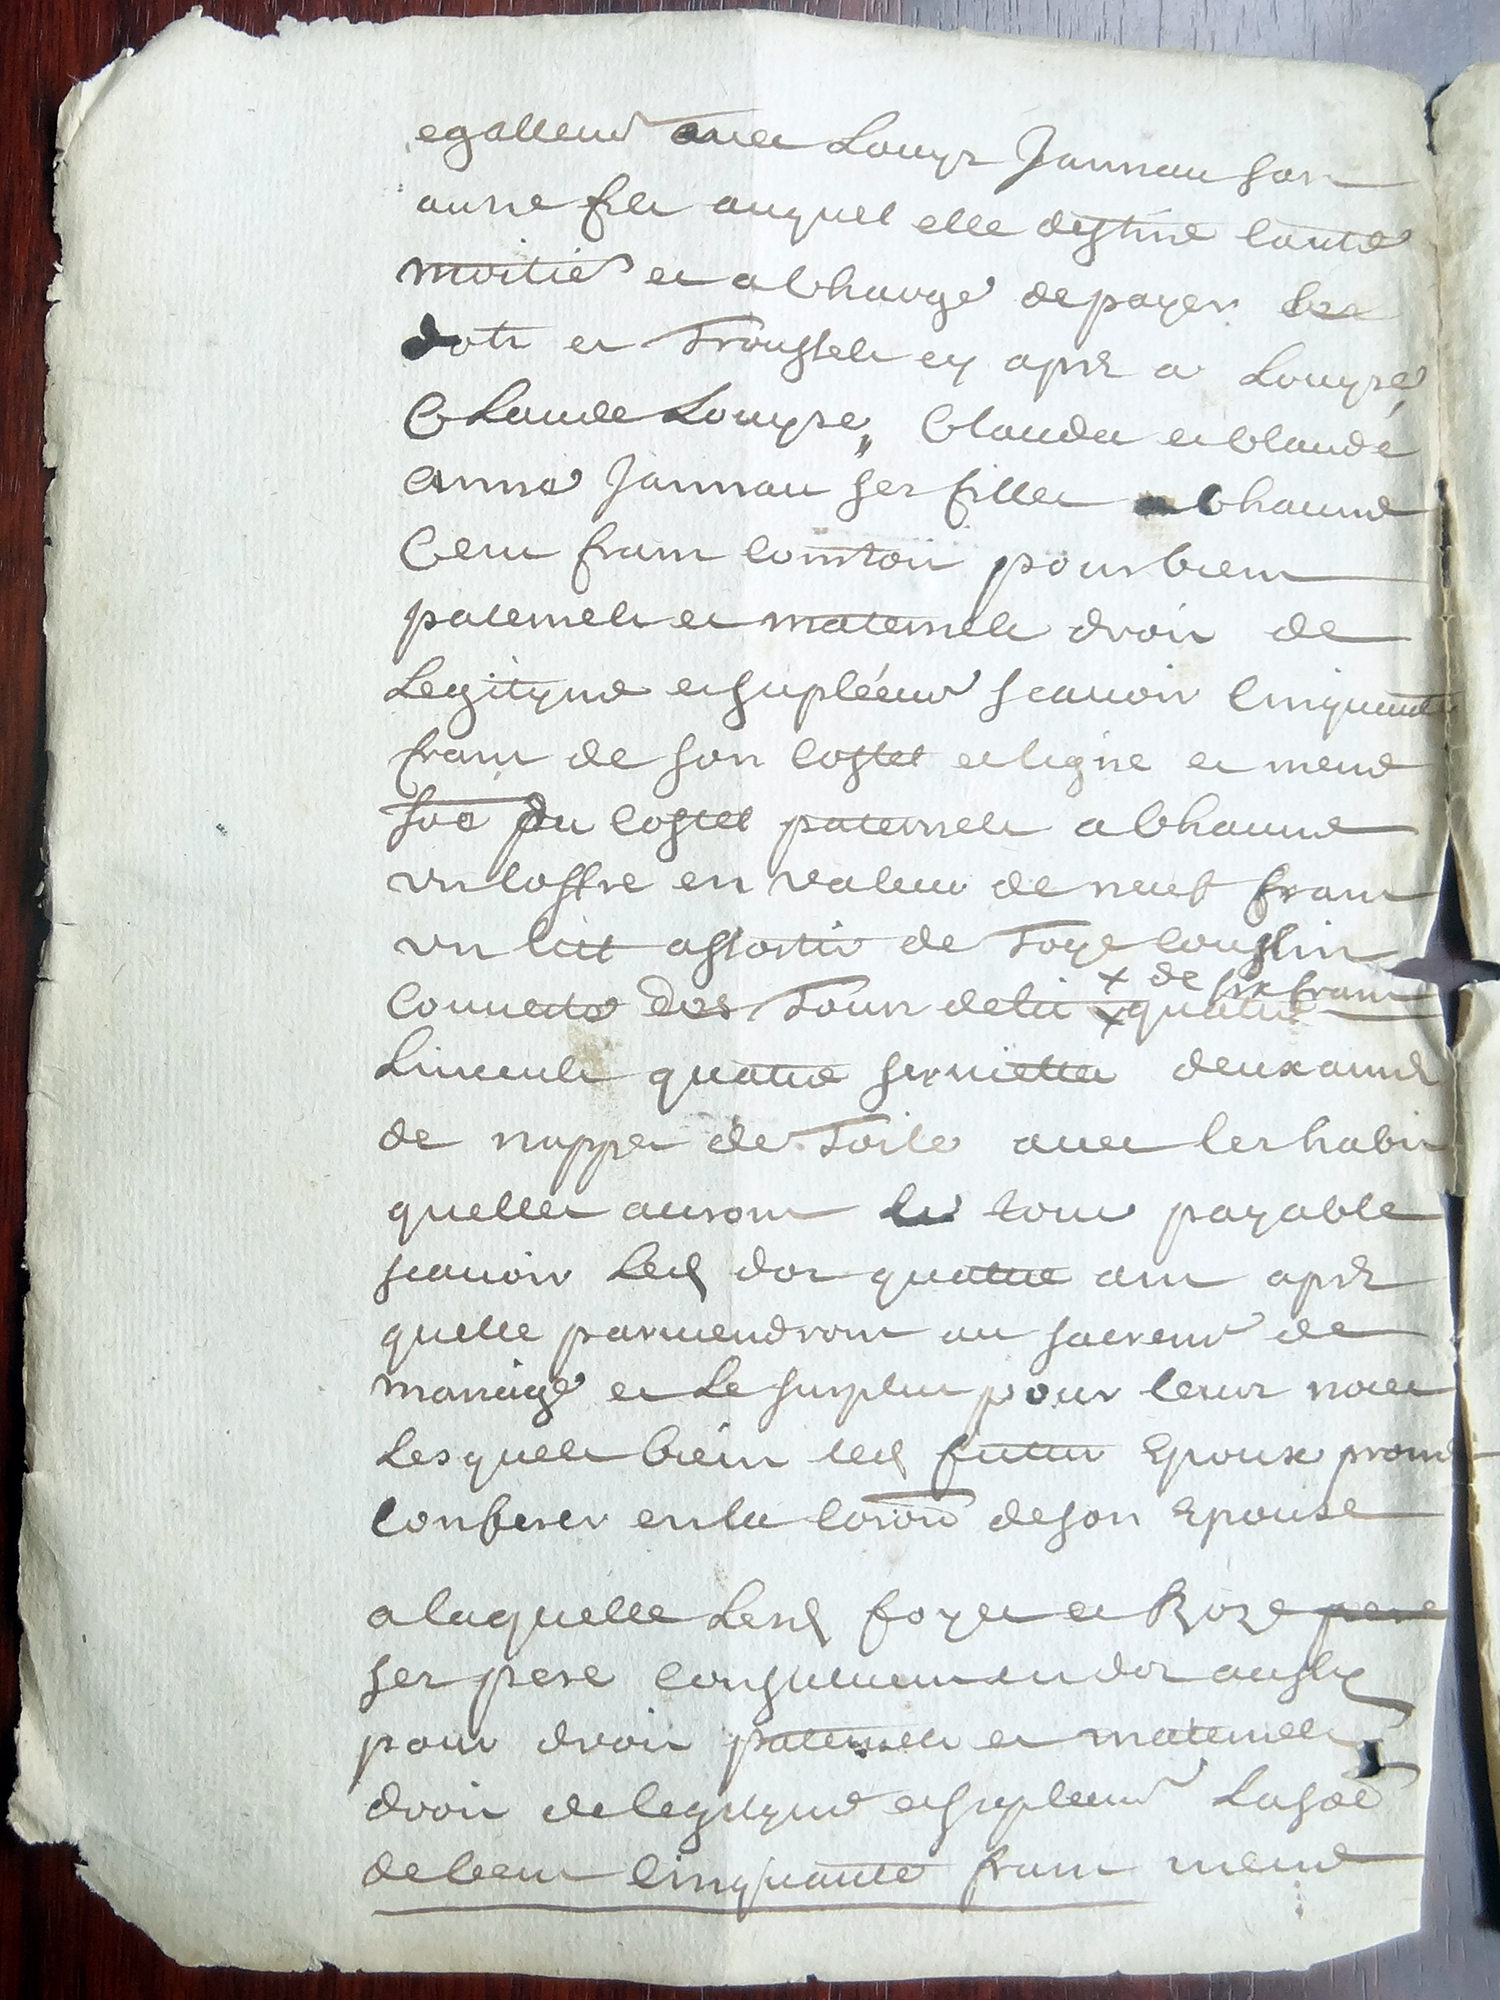 egallemt avec Louys Jannau son
autre fils auquel elle destine lautre
moitié et a Charge de payer les
dots et Troussels cy aprs a Louyse,
Claude Louyse,, Claudes et Claude
Anne Jannau ses filles a Chaune
Cent frans comtois pour biens
paternels et maternels drois de
Legityme et supléemt scauoir Cinquante
frans de son costel et ligne et meme
soe du costel paternels a Chaune
vn coffre en valeur de neuf frans
vn lict assortis de Toye coussin
Couuerte des Tours de lit × quatre
× de six frans
Linceuls quatre seruiettes deux aunes
de nappes de Toile auec les habis
quelles auront le tout payable
scauoir Led dot quatre ans aprs
quelle paruiendront au sacremt de
mariage et Le surplus pour leurs noces
Lesquels biens led futur Epoux promet
Conferer en la coion de son Epouse
a laquelle Lesd foyer et Roze pere
ses pere constituent en dot aussy
pour drois paternels et maternels
drois de legityme et suplemt La soe
de Cent Cinquante frans meme